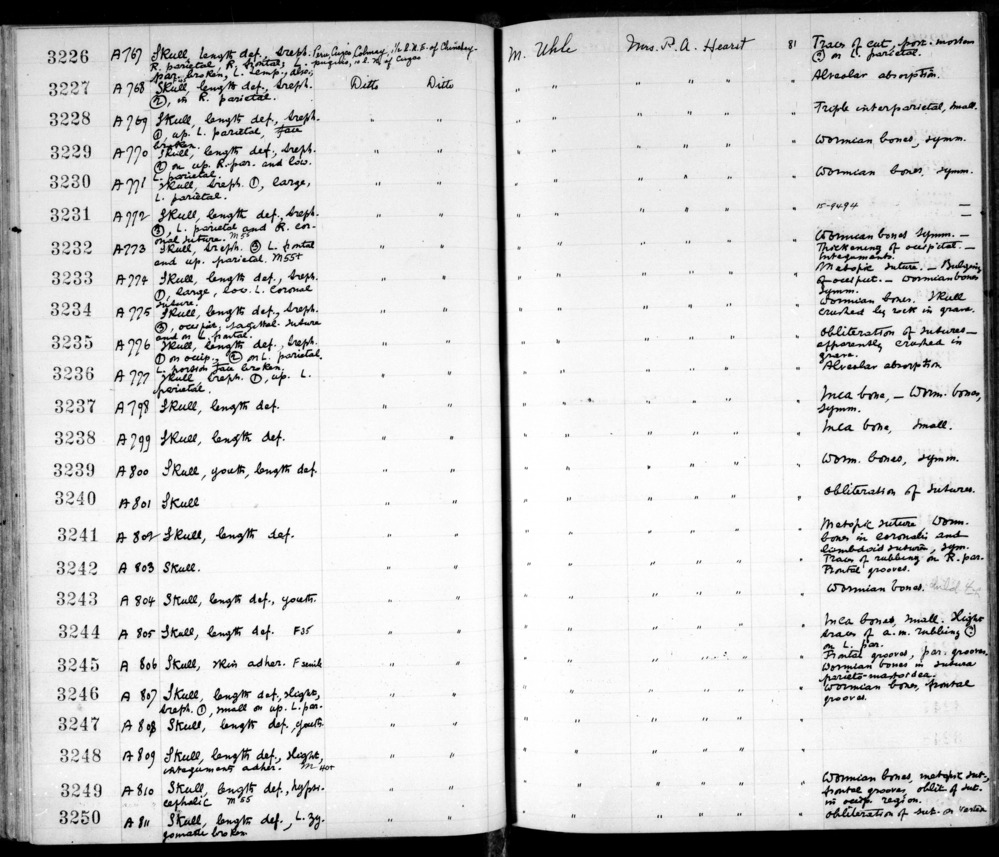 3226 A767 Skull, length def., treph. Peru, Cuzco, , 1/2 l. N.E. of
R. parietal, R. frontal; L. , 10 l. N. of Cuzco M. Uhle Mrs. P. A. Hearst 81 Traces of cut, post-mortem
par. broken, L. temp., also, (?) on L. parietal.
3227 A768 Skull, length def., treph. Ditto Ditto " " " " " " Alveolar absorption.
(2), in R. parietal.
3228 A769 Skull, length def., treph. " " " " " " " " Triple interparietal, small.
(1), up. L. parietal, face
broken.
3229 A770 Skull, length def., treph. " " " " " " " " Wormian bones, symm.
(2) on up. R. par. and low.
L. parietal.
3230 A771 Skull, treph. (1), large, " " " " " " " " Wormian bones, symm.
L. parietal.
3231 A772 Skull, length def., treph. " " " " " " " " 15-9494 —
(3), L. parietal and R. cor-
onal suture. M55
3232 A773 Skull, treph. (3) L. frontal " " " " " " " " Wormian bones symm. —
and up. parietal. M55+ Thickening of occipital. —
Integuments.
3233 A774 Skull, length def., treph. " " " " " " " " Metopic suture. — Bulging
(1), large, low. L. coronal of occiput. — Wormian bones
suture. symm.
3234 A775 Skull, length def., treph. " " " " " " " " Wormian bones. Skull
(3), occiput, sagittal suture crushed by rock in grave.
and on L. frontal.
3235 A776 Skull, length def., treph. " " " " " " " " Obliteration of sutures —
(1) on occip., (2) on L. parietal. apparently crushed in
L. portion face broken. grave.
3236 A777 Skull treph. (1), up. L. " " " " " " " " Alveolar absorption
parietal.
3237 A798 Skull, length def. " " " " " " " " Inca bone, — Worm. bones,
symm.
3238 A799 Skull, length def. " " " " " " " " Inca bone, small.
3239 A800 Skull, youth, length def. " " " " " " " " Worm. bones, symm.
3240 A801 Skull " " " " " " " " Obliteration of sutures.
3241 A802 Skull, length def. " " " " " " " " Metopic suture Worm.
bones in coronalis and
lambdoid suture, sym.
3242 A803 Skull. " " " " " " " " Traces of rubbing on R. par.
Frontal grooves.
3243 A804 Skull, length def., youth. " " " " " " " " Wormian bones.
3244 A805 Skull, length def. F35 " " " " " " " " Inca bones, small. Slight
traces of a.m. rubbing (?)
on L. par.
3245 A806 Skull, skin adher. F senile " " " " " " " " Frontal grooves, par. grooves
Wormian bones in sutura
parieto-mastoidea.
3246 A807 Skull, length def., slight, " " " " " " " " Wormian bones, frontal
treph. (1), small on up. L. par. grooves.
3247 A808 Skull, length def., youth " " " " " " " "
3248 A809 Skull, length def., slight, " " " " " " " "
integument adher. M 40+
3249 A810 Skull, length def., hypsi- " " " " " " " " Wormian bones, metopic sut.,
cephalic M55 frontal grooves, oblit. of sut.
in occip. region.
3250 A811 Skull, length def., L. zy- " " " " " " " " Obliteration of sut. on vertex
gomatic broken.